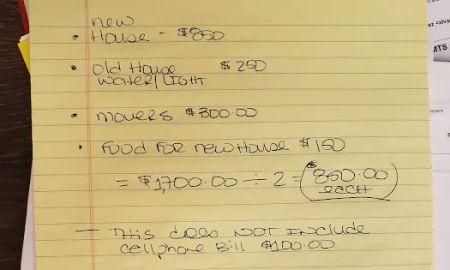 new
• House - $850
• old House $250
water/light
• movers $300.00
• Food For new House $150
= $1,700.00 ÷ 2 = $850.00
each
— This does NOT Include
cellphone Bill $100.00
MTS